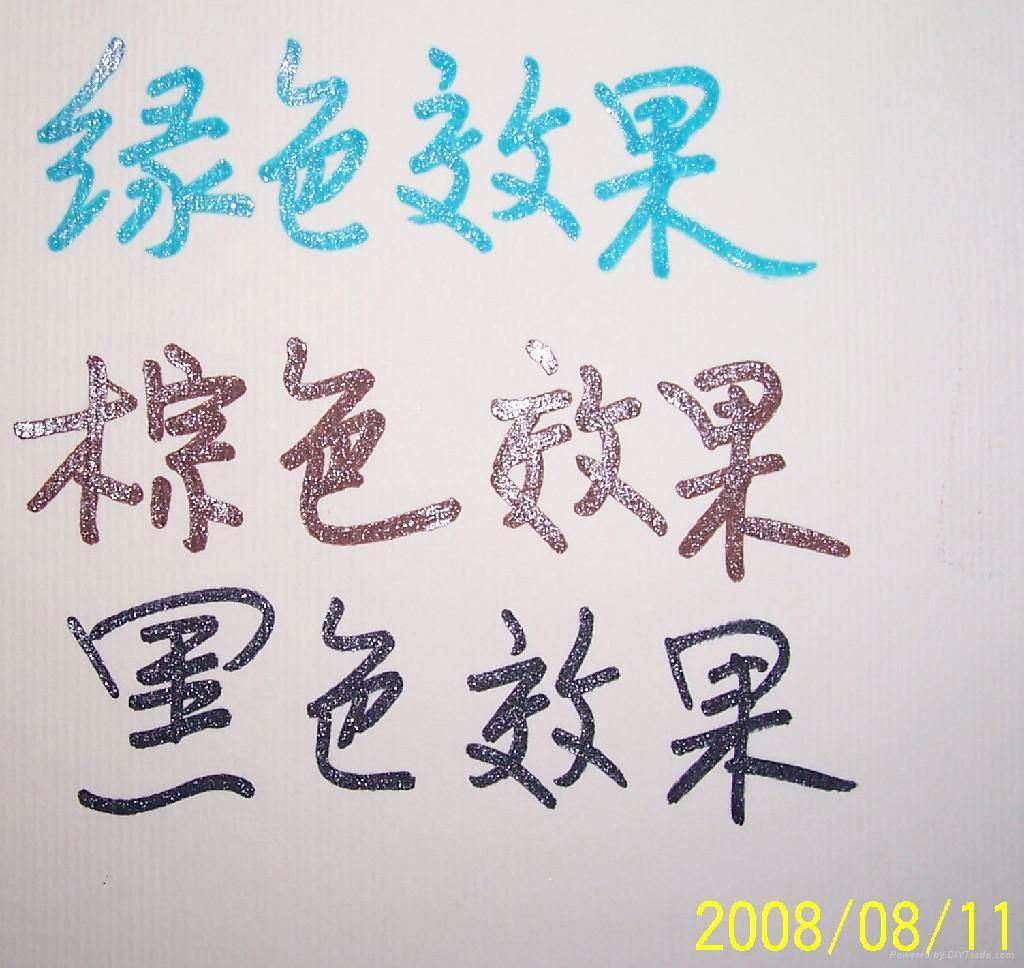 绿色效果
棕色效果
黑色效果
2008/08/11
Powered by DIYTrade.com